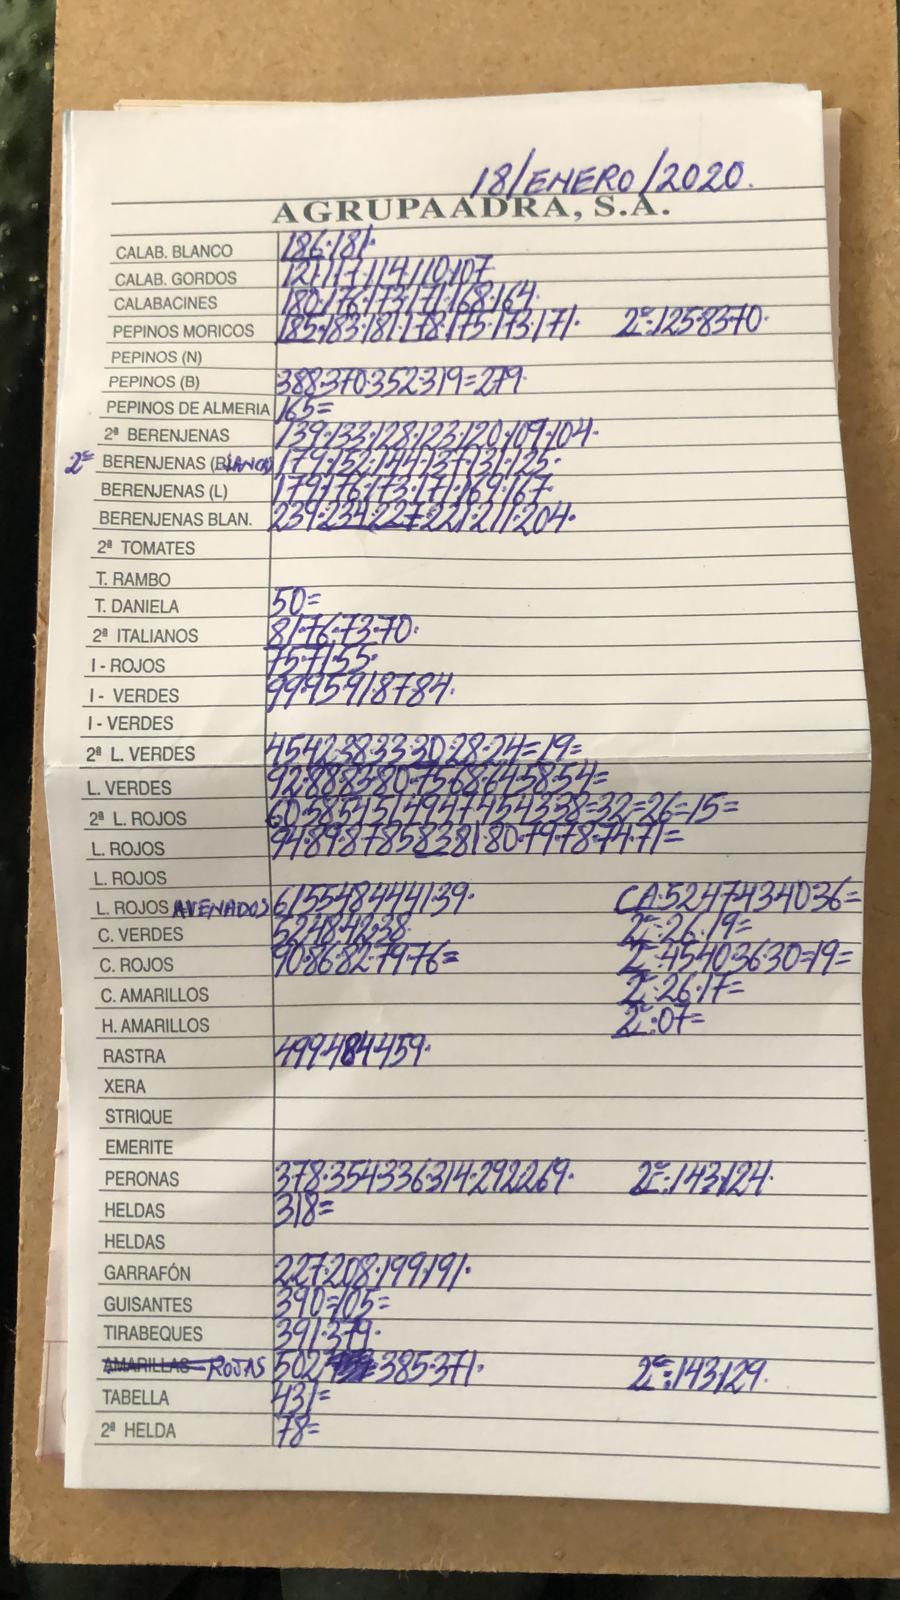 18/ENERO/2020.
AGRUPAADRA, S.A.
CALAB. BLANCO 186·181·
CALAB. GORDOS 121·117·114·110·107
CALABACINES 180·176·173·171·168·164·
PEPINOS MORICOS 185·183·181·178·175·173·171· 2ª:125·83·70·
PEPINOS (N)
PEPINOS (B) 388·370·352·319=279·
PEPINOS DE ALMERIA 165=
2ª BERENJENAS 139·133·128·123·120·109·104·
2ª BERENJENAS (BLANCA) 179·152·144·137·131·125·
BERENJENAS (L) 179·176·173·171·169·167·
BERENJENAS BLAN. 239·234·227·221·211·204·
2ª TOMATES
T. RAMBO
T. DANIELA 50=
2ª ITALIANOS 81·76·73·70·
I - ROJOS 75·71·55·
I - VERDES 99·95·91·87·84·
I - VERDES
2ª L. VERDES 45·42·38·33·30·28·24=19=
L. VERDES 92·88·83·80·75·68·64·58·54=
2ª L. ROJOS 60·58·54·51·49·47·45·43·38=32=26=15=
L. ROJOS 94·89·87·85·83·81·80·79·78·74·71=
L. ROJOS
L. ROJOS AVENADOS 61·55·48·44·41·39· CA:52·47·43·40·36=
C. VERDES 52·48·42·38· 2ª:26·19=
C. ROJOS 90·86·82·79·76= 2ª:45·40·36·30=19=
C. AMARILLOS 2ª:26·17=
H. AMARILLOS 2ª:07=
RASTRA 499·484·459·
XERA
STRIQUE
EMERITE
PERONAS 378·354·336·314·292·269· 2ª:143·124·
HELDAS 318=
HELDAS
GARRAFÓN 227·208·199·191·
GUISANTES 390=105=
TIRABEQUES 391·379·
AMARILLAS ROJAS 502 385·371· 2ª:143·129·
TABELLA 431=
2ª HELDA 78=